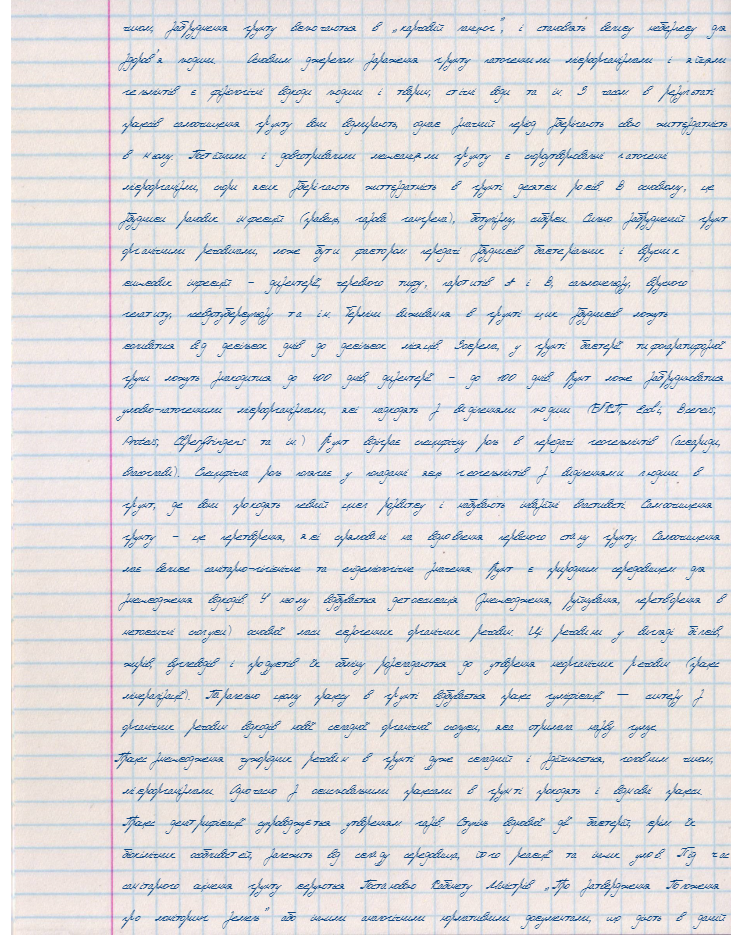 чином, забруднення ґрунту включаються в „харчовий ланцюг", і становлять велику небезпеку для
здоров'я людини. Основним джерелом зараження ґрунту патогенними мікроорганізмами і яйцями
гельмінтів є фізіологічні відходи людини і тварин, стічні води та ін. З часом в результаті
процесів самоочищення ґрунту вони відмирають, однак значний період зберігають свою життєздатність
в ньому. Постійними і довготривалими мешканцями ґрунту є спороутворювальні патогенні
мікроорганізми, спори яких зберігають життєздатність в ґрунті десятки років. В основному, це
збудники ранових інфекцій (правець, газова гангрена), ботулізму, сибірки. Сильно забруднений ґрунт
органічними речовинами, може бути фактором передачі збудників бактеріальних і вірусних
кишкових інфекцій – дизентерії, черевного тифу, паратифів А і В, сальмонельозу, вірусного
гепатиту, псевдотуберкульозу та ін. Терміни виживання в ґрунті цих збудників можуть
коливатися від декількох днів до декількох місяців. Зокрема, у ґрунті бактерії тифопаратифозної
групи можуть знаходитися до 400 днів, дизентерії – до 100 днів. Ґрунт може забруднюватися
умовно-патогенними мікроорганізмами, які надходять з виділеннями людини (БГКП, E.coli, B.cereus,
Proteus, Cl.perfringens та ін.) Ґрунт відіграє специфічну роль в передачі геогельмінтів (аскариди,
власоглави). Специфічна роль полягає у попаданні яєць геогельмінтів з виділеннями людини в
ґрунт, де вони проходять певний цикл розвитку і набувають інвазійні властивості. Самоочищення
ґрунту – це перетворення, які спрямовані на відновлення первісного стану ґрунту. Самоочищення
має велике санітарно-гігієнічне та епідеміологічне значення. Ґрунт є природним середовищем для
знешкодження відходів. У ньому відбувається детоксикація (знешкодження, руйнування, перетворення в
нетоксичні сполуки) основної маси екзогенних органічних речовин. Ці речовини у вигляді білків,
жирів, вуглеводів і продуктів їх обміну розкладаються до утворення неорганічних речовин (процес
мінералізації). Паралельно цьому процесу в ґрунті відбувається процес гуміфікації — синтезу з
органічних речовин відходів нової складної органічної сполуки, яка отримала назву гумус.
Процес знешкодження чужорідних речовин в ґрунті дуже складний і здійснюється, головним чином,
мікроорганізмами. Одночасно з окислювальними процесами в ґрунті проходять і відновні процеси.
Процес денітрифікації супроводжується утворенням газів. Ступінь відновної дії бактерій, крім їх
біохімічних особливостей, залежить від складу середовища, його реакції та інших умов. Під час
санітарного оцінення ґрунту керуються Постановою Кабінету Міністрів „Про затвердження Положення
про моніторинг земель" або іншими аналогічними нормативними документами, що діють в даний